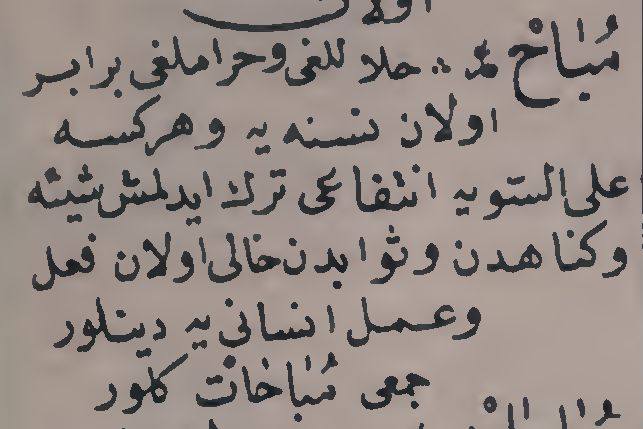 اولان
مُبَاحْ حلاللغى وحراملغى برابر
اولان نسنه يه وهركسه
على السويه انتفاعى ترك ايدلمش شيئه
وكناهدن وثوابدن خالى اولان فعل
وعمل انسانى يه دينلور
جمعى مُبَاحَاتْ كلور